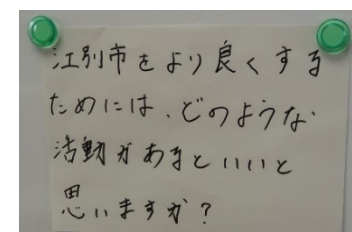 江別市をより良くする
ためには、どのような
活動があるといいと
思いますか？